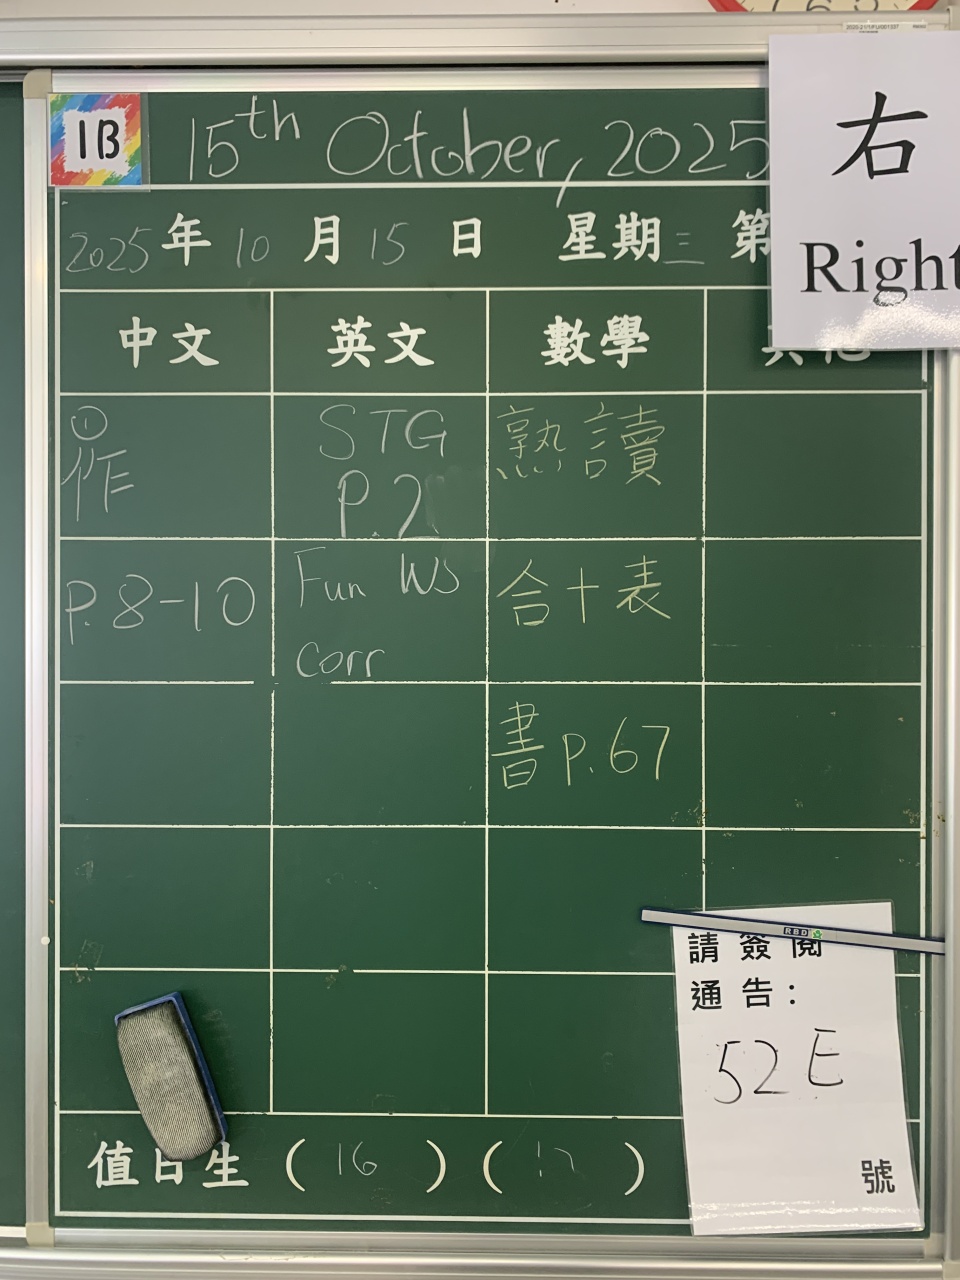 1B
15th October, 2025
右
Right
2025年10月15日 星期三 第
中文 英文 數學
①
作
P.8-10
STG
P.2
Fun WS
corr
熟讀
合十表
書P.67
RBD
請簽閱
通告：
52E
號
值日生（16）（17）